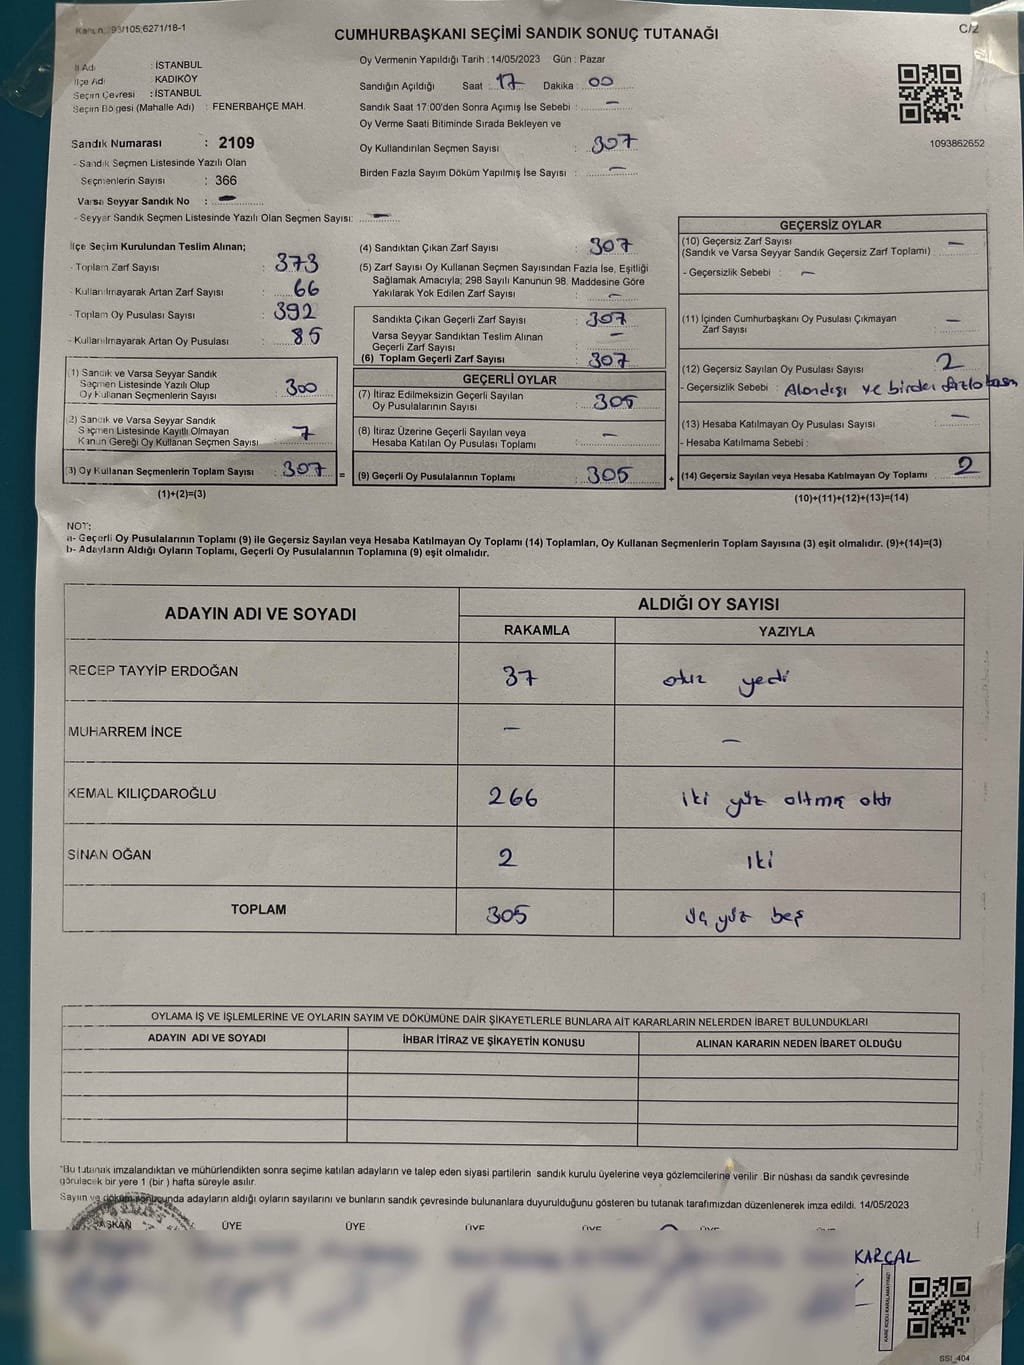 Kanun: 93/105,6271/18-1
CUMHURBAŞKANI SEÇİMİ SANDIK SONUÇ TUTANAĞI
C/2
İl Adı : İSTANBUL
İlçe Adı : KADIKÖY
Seçim Çevresi : İSTANBUL
Seçim Bölgesi (Mahalle Adı) : FENERBAHÇE MAH.
Sandık Numarası : 2109
- Sandık Seçmen Listesinde Yazılı Olan
Seçmenlerin Sayısı : 366
Varsa Seyyar Sandık No : -
- Seyyar Sandık Seçmen Listesinde Yazılı Olan Seçmen Sayısı: -
Oy Vermenin Yapıldığı Tarih : 14/05/2023 Gün : Pazar
Sandığın Açıldığı Saat : 17 Dakika : 00
Sandık Saat 17:00'den Sonra Açımış İse Sebebi : -
Oy Verme Saati Bitiminde Sırada Bekleyen ve
Oy Kullandırılan Seçmen Sayısı : 307
Birden Fazla Sayım Döküm Yapılmış İse Sayısı : -
1093862652
İlçe Seçim Kurulundan Teslim Alınan;
- Toplam Zarf Sayısı : 373
- Kullanılmayarak Artan Zarf Sayısı : 66
- Toplam Oy Pusulası Sayısı : 392
- Kullanılmayarak Artan Oy Pusulası : 85
(1) Sandık ve Varsa Seyyar Sandık
Seçmen Listesinde Yazılı Olup
Oy Kullanan Seçmenlerin Sayısı : 300
(2) Sandık ve Varsa Seyyar Sandık
Seçmen Listesinde Kayıtlı Olmayan
Kanun Gereği Oy Kullanan Seçmen Sayısı : 7
(3) Oy Kullanan Seçmenlerin Toplam Sayısı : 307 =
(1)+(2)=(3)
(4) Sandıktan Çıkan Zarf Sayısı : 307
(5) Zarf Sayısı Oy Kullanan Seçmen Sayısından Fazla İse, Eşitliği
Sağlamak Amacıyla; 298 Sayılı Kanunun 98. Maddesine Göre
Yakılarak Yok Edilen Zarf Sayısı : -
Sandıkta Çıkan Geçerli Zarf Sayısı : 307
Varsa Seyyar Sandıktan Teslim Alınan -
Geçerli Zarf Sayısı :
(6) Toplam Geçerli Zarf Sayısı : 307
GEÇERLİ OYLAR
(7) İtiraz Edilmeksizin Geçerli Sayılan
Oy Pusulalarının Sayısı : 305
(8) İtiraz Üzerine Geçerli Sayılan veya
Hesaba Katılan Oy Pusulası Toplamı : -
(9) Geçerli Oy Pusulalarının Toplamı : 305 +
GEÇERSİZ OYLAR
(10) Geçersiz Zarf Sayısı -
(Sandık ve Varsa Seyyar Sandık Geçersiz Zarf Toplamı) :
- Geçersizlik Sebebi : -
(11) İçinden Cumhurbaşkanı Oy Pusulası Çıkmayan -
Zarf Sayısı :
(12) Geçersiz Sayılan Oy Pusulası Sayısı : 2
- Geçersizlik Sebebi : ve birden
(13) Hesaba Katılmayan Oy Pusulası Sayısı : -
- Hesaba Katılmama Sebebi :
(14) Geçersiz Sayılan veya Hesaba Katılmayan Oy Toplamı : 2
(10)+(11)+(12)+(13)=(14)
NOT:
a- Geçerli Oy Pusulalarının Toplamı (9) ile Geçersiz Sayılan veya Hesaba Katılmayan Oy Toplamı (14) Toplamları, Oy Kullanan Seçmenlerin Toplam Sayısına (3) eşit olmalıdır. (9)+(14)=(3)
b- Adayların Aldığı Oyların Toplamı, Geçerli Oy Pusulalarının Toplamına (9) eşit olmalıdır.
ADAYIN ADI VE SOYADI ALDIĞI OY SAYISI
RAKAMLA YAZIYLA
RECEP TAYYİP ERDOĞAN 37 otuz yedi
MUHARREM İNCE - -
KEMAL KILIÇDAROĞLU 266 iki yüz altmış altı
SİNAN OĞAN 2 iki
TOPLAM 305 üç yüz beş
OYLAMA İŞ VE İŞLEMLERİNE VE OYLARIN SAYIM VE DÖKÜMÜNE DAİR ŞİKAYETLERLE BUNLARA AİT KARARLARIN NELERDEN İBARET BULUNDUKLARI
ADAYIN ADI VE SOYADI İHBAR İTİRAZ VE ŞİKAYETİN KONUSU ALINAN KARARIN NEDEN İBARET OLDUĞU
*Bu tutanak imzalandıktan ve mühürlendikten sonra seçime katılan adayların ve talep eden siyasi partilerin sandık kurulu üyelerine veya gözlemcilerine verilir. Bir nüshası da sandık çevresinde
görülecek bir yere 1 (bir) hafta süreyle asılır.
Sayım ve döküm sonucunda adayların aldığı oyların sayılarını ve bunların sandık çevresinde bulunanlara duyurulduğunu gösteren bu tutanak tarafımızdan düzenlenerek imza edildi. 14/05/2023
BAŞKAN ÜYE ÜYE ÜYE ÜYE ÜYE
KARÇAL
KARE KODU KARALAMAYINIZ!
SSI_404